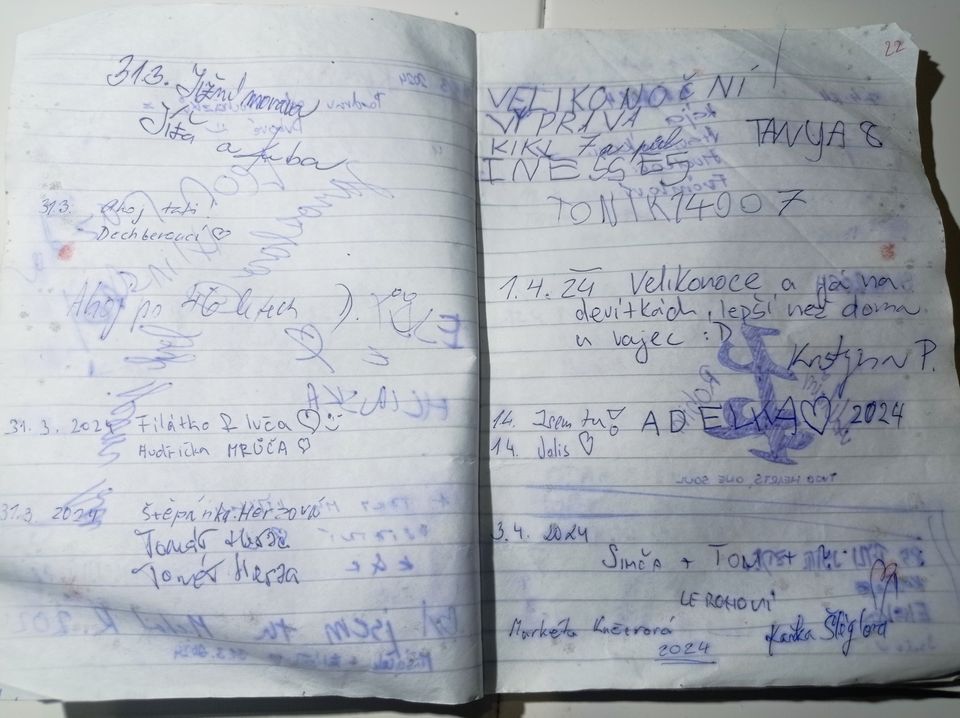 31.3. Jižní morava
Jíťa a Kuba
31.3. Ahoj tati!
Dechberoucí ♡
Ahoj po 40 letech :)
31.3.2024 Filátko z luča ♡
MRŮČA ♡
31.3.2024 Štěpánka Herzová
Tomáš Herza
Tomáš Herza
22
VELIKONOČNÍ
VÝPRAVA
KIKI 7 a půl
INESS ES
TANYA 8
TONIK14007
1.4.24 Velikonoce a já na
devítkách, lepší než doma
u vajec :D
Kristýna P.
1.4. Jsem tu! ADELKA♡ 2024
1.4. Jolis ♡
3.4. 2024
SIMČA + TOM +
LEROHOVI
Markéta Kučerová
2024